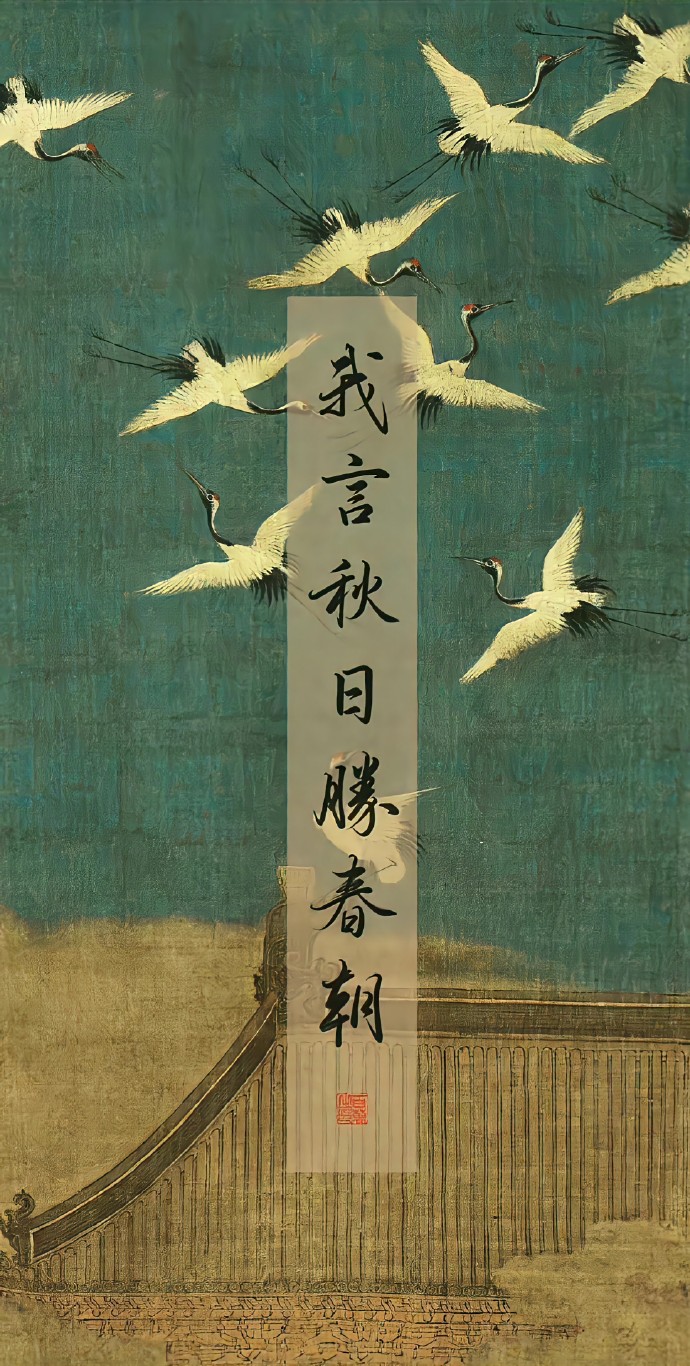 我言秋日勝春朝